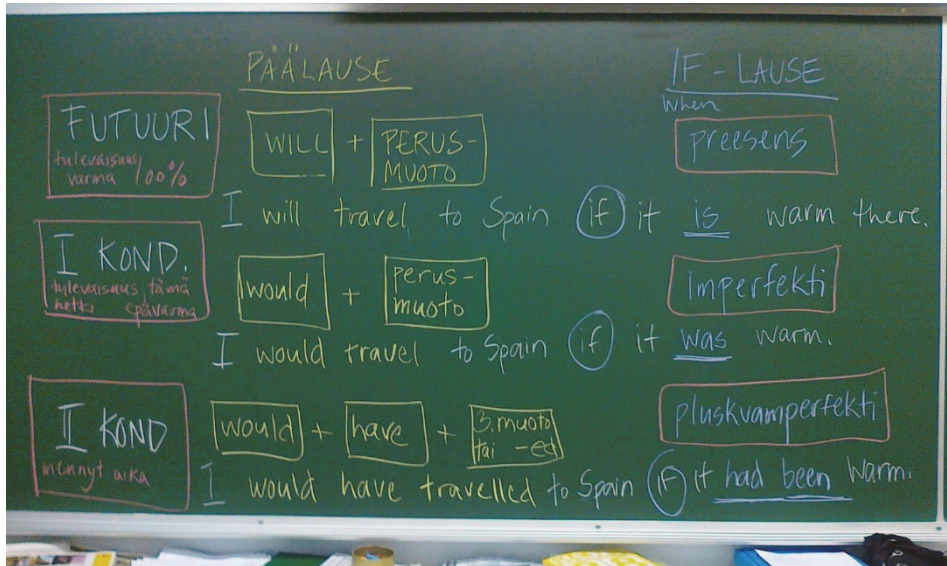 PÄÄLAUSE
IF - LAUSE
when
FUTUURI
tulevaisuus
varma 100%
WILL + PERUS-
MUOTO
preesens
I will travel to Spain if it is warm there.
I KOND.
tulevaisuus, tämä
hetki epävarma
would + perus-
muoto
imperfekti
I would travel to Spain if it was warm.
II KOND
mennyt aika
would + have + 3. muoto
tai -ed
pluskvamperfekti
I would have travelled to Spain IF it had been warm.